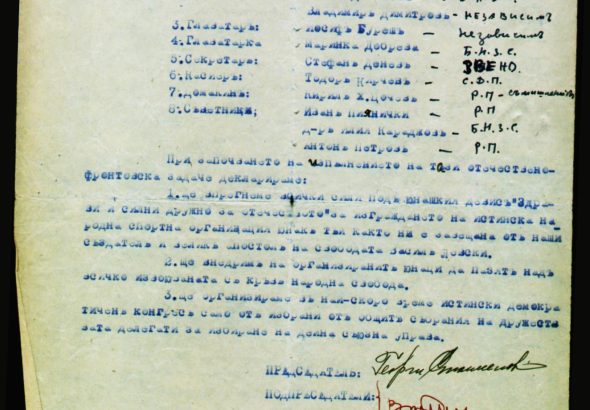 Владимиръ Димитровъ – НЕЗАВИСИМЪ
3. Глазатарь: Йосифъ Бурешъ – НЕЗАВИСИМЪ
4. Глазатарка Маринка Деорева – Б.Н.З.С.
5. Секретарь: Стефанъ Деневъ – ЗВЕНО.
6. Касиеръ: Тодоръ – С.Д.П.
7. Домакинъ: Кирилъ Х.Цочевъ – Р.П –
8. Съветници; Иванъ – Р.П
д-ръ Емил Караджовъ – Б.Н.З.С.
Антонъ Петровъ – Р.П.
При започването на изпълнението на тази отечествено-
фронтовска задаче деклариране:
1. ще впрегнеме всички сили подъ юнашкия девизъ"Здра-
ви и силни дружно за отечеството"за изграждането на истинска на-
родна спортна организация юнакъ тъи както ни е завещана отъ наши
създатель и великъ апостолъ на свободата Василъ Левски.
2. ще внедримъ на организиранитъ юнаци да пазятъ надъ
всичко извоюваната съ кръвъ народна свобода.
3. ще организираме въ най-скоро време истински демокра
тиченъ конгресъ само отъ избрани отъ общитъ събрания на дружеств
вата делегати за избиране на дейна съюзна управа.
ПРЕДСЕДАТЕЛЬ: Георги
ПОДПРЕДСЕДАТЕЛИ: